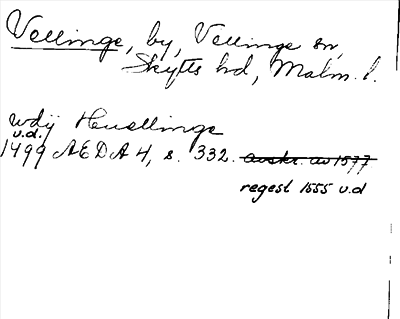 Vellinge, by, Vellinge sn,
Skytts hd, Malm. l.
wdÿ Huellinge
u.d.
1499 AEDA 4, s. 332. avskr. av 1577
regest 1555 u.d